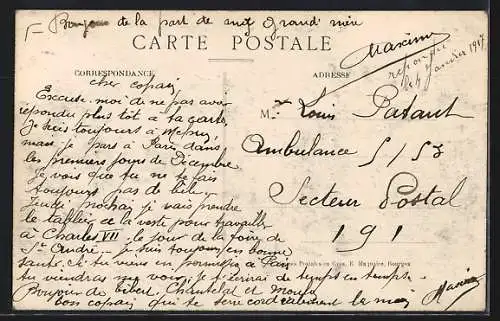 Bonjour de la part de ma Grand' mère
CARTE POSTALE
Maxime
répondu
le 4 janvier 1917
CORRESPONDANCE
ADRESSE
cher copain
Excuse moi de ne pas avoir
répondu plus tôt à ta carte
Je suis toujours à
mais je pars à Paris dans
les premiers jours de Décembre
Je vois que tu ne te fais
toujours pas de bile.
Jeudi prochain je vais prendre
le tablier et la veste pour travailler
à Charles VII le jour de la foire de
St André. je suis toujours en bonne
santé. Si tu viens en permission à Paris
tu viendras me voir. Je t'écrirai de temps en temps.
Bonjour de Chantelat et
bon copain qui te serre cordialement la main
Maxime
Mr Louis Patant
Ambulance 5/53
Secteur Postal
191